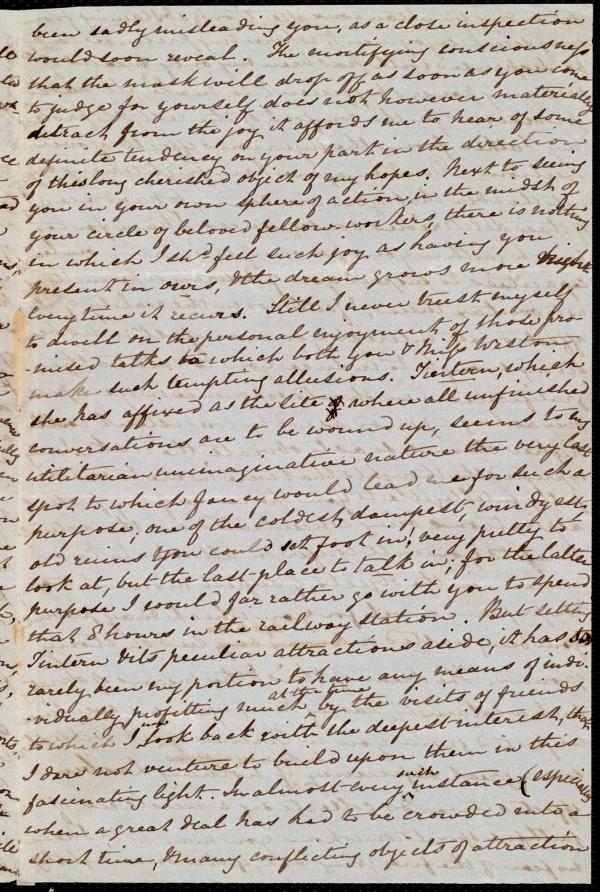 been sadly misleading you, as a close inspection
would soon reveal. The mortifying consciousness
that the mask will drop off as soon as you come
to judge for yourself does not however materially
detract from the joy it affords me to hear of some
definite tendency on your part in the direction
of this long cherished object of my hopes. Next to seeing
you in your own sphere of action, in the midst of
your circle of beloved fellow-workers, there is nothing
in which I shd. feel such joy as having you
present in ours, & the dream grows more
every time it recurs. Still I never trust myself
to dwell on the personal enjoyment of those pro
mised talks to which both you & Miss Weston
make such tempting allusions. Tintern, which
she has affixed as the site where all unfinished
conversations are to be wound up, seems to my
utilitarian unimaginative nature the very last
spot to which fancy would lead me for such a
purpose, one of the coldest, dampest, windyest,
old ruins you could set foot in; very pretty to
look at, but the last place to talk in; for the latter
purpose I would far rather go with you to spend
that 8 hours in the railway station. But setting
Tintern & its peculiar attractions aside, it has so
rarely been my portion to have any means of indi-
-vidually profitting much at the time by the visits of friends
to which I look back with the deepest interest, that
I dare not venture to build upon them in this
fascinating light. In almost every such instance (especially
when a great deal has had to be crowded into a
short time, & many conflicting objects of attraction